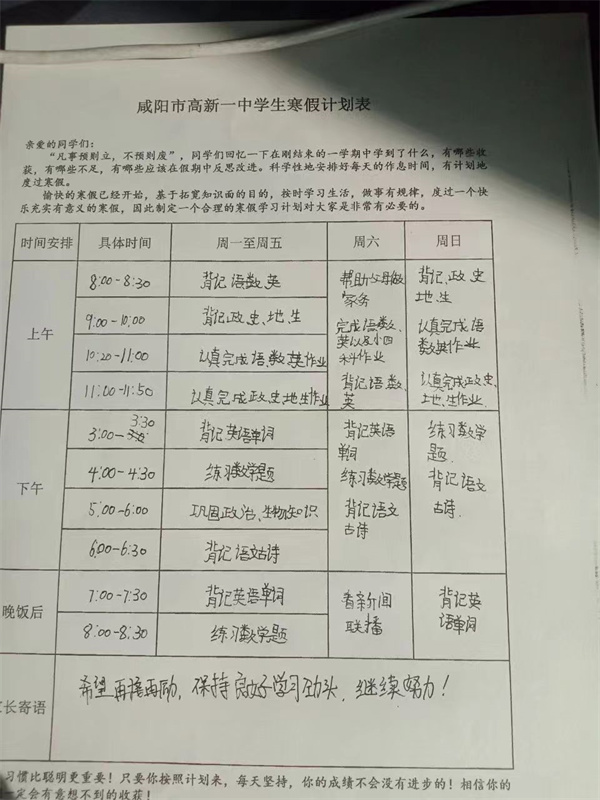 咸阳市高新一中学生寒假计划表
亲爱的同学们：
“凡事预则立，不预则废”，同学们回忆一下在刚结束的一学期中学到了什么，有哪些收
获，有哪些不足，有哪些应该在假期中反思改进。科学性地安排好每天的作息时间，有计划地
度过寒假。
愉快的寒假已经开始，基于拓宽知识面的目的，按时学习生活，做事有规律，度过一个快
乐充实有意义的寒假，因此制定一个合理的寒假学习计划对大家是非常有必要的。
时间安排 具体时间 周一至周五 周六 周日
上午
8:00-8:30 背记语数英
9:00-10:00 背记政、史、地、生
10:20-11:00 认真完成语、数、英作业
11:00-11:50 认真完成政、史、地、生作业
帮助父母做
家务
完成语、数、
英以及小四
科作业
背记语、数、
英
背记、政、史
地、生
认真完成语
数英作业
认真完成政、史、
地、生作业.
下午
3:30
3:00- 背记英语单词
4:00-4:30 练习数学题
5:00-6:00 巩固政治、生物知识
6:00-6:30 背记语文古诗
背记英语
单词
练习数学题
背记语文
古诗
练习数学
题.
背记语文
古诗.
晚饭后
7:00-7:30 背记英语单词
8:00-8:30 练习数学题
看新闻
联播
背记英
语单词
长寄语
希望再接再励，保持良好学习劲头，继续努力！
习惯比聪明更重要！只要你按照计划来，每天坚持，你的成绩不会没有进步的！相信你的
一定会有意想不到的收获！